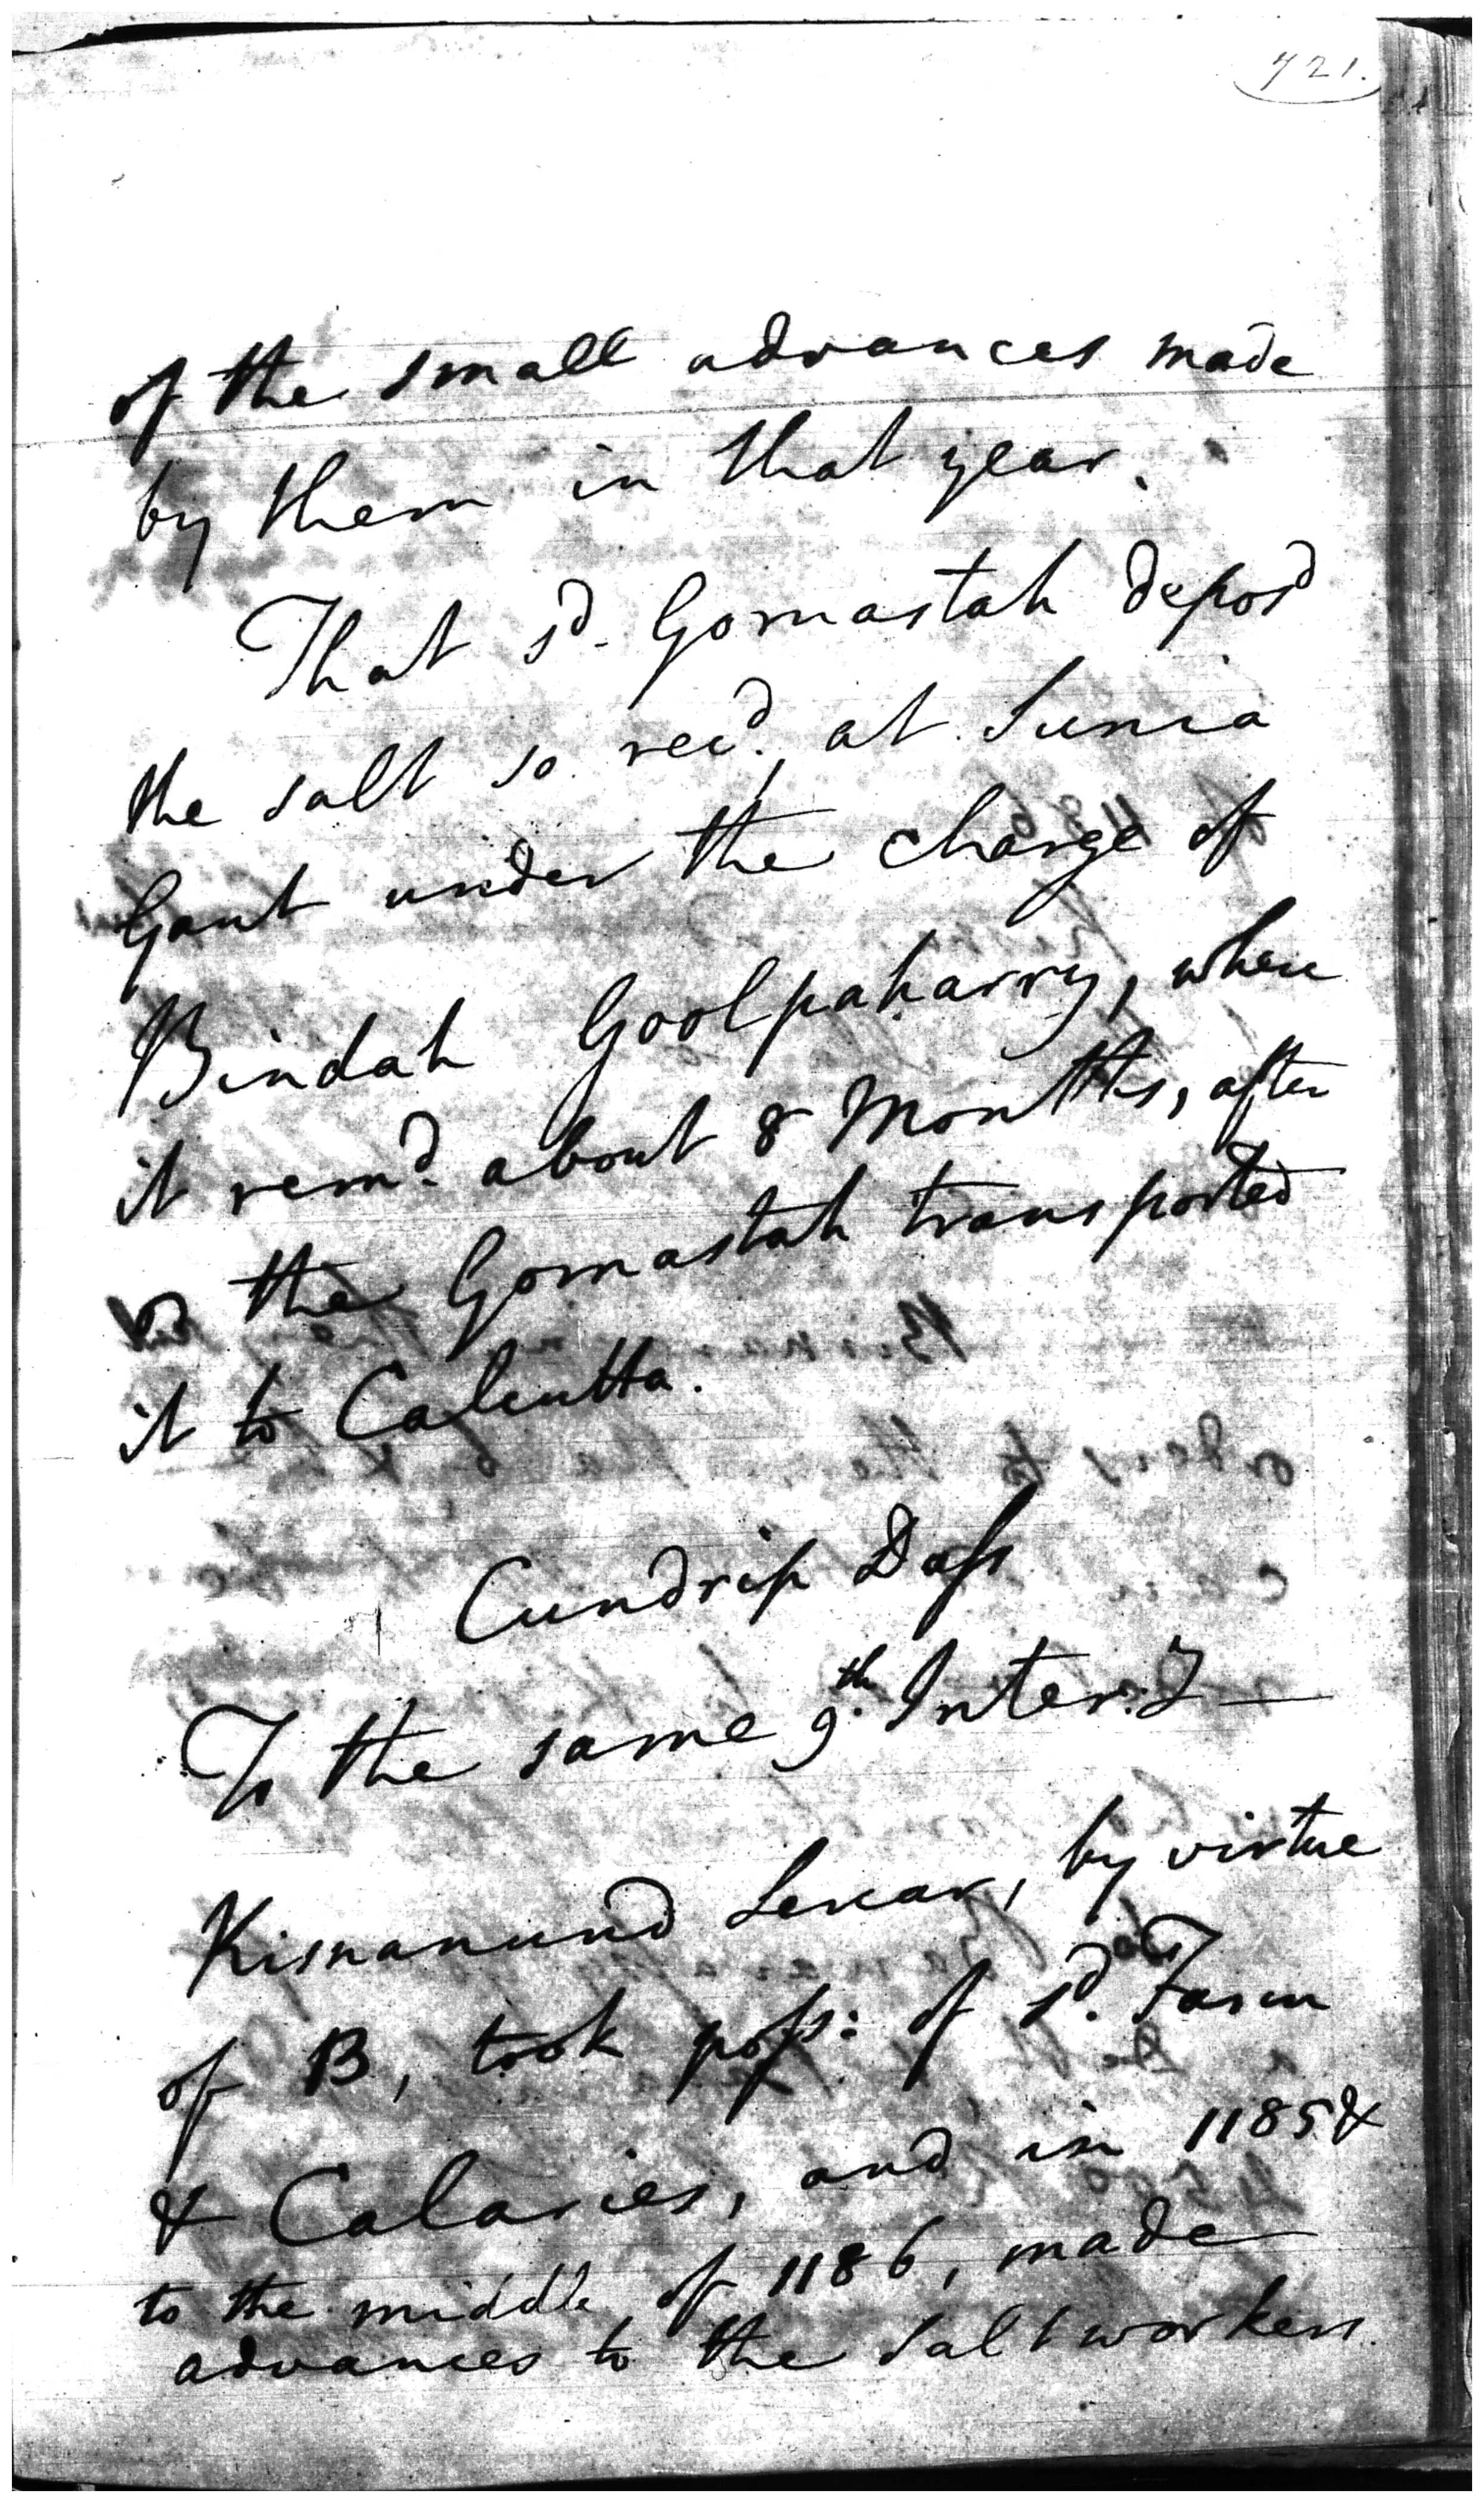 721.
of the small advances made
by them in that year.
That sd. Gomastah deposd
the salt so recd. at Sunia
Gaut under the charge of
Bindah Goolpaharry, where
it remd. about 8 Months, after
the Gomastah transported
it to Calcutta.
Cundrip Dass
To the same 9th. Inter:y —
Kisnanund Sercar, by virtue
of B, took poss: of sd. Farm
& Calaries, and in 1185 &
to the middle of 1186, made
advances to the salt workers